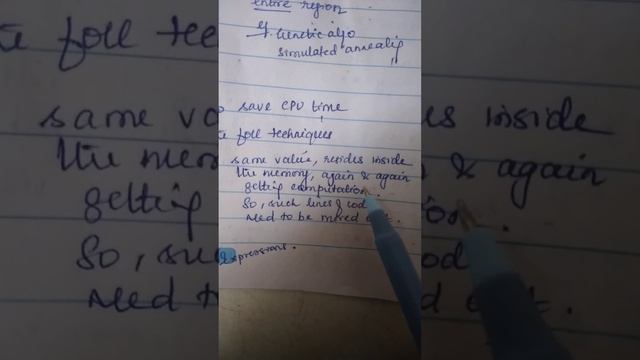 entire region
eg. Genetic algo
simulated annealing
save CPU time
foll techniques
same value, resides inside
the memory, again & again
getting computation.
So, such lines of code
need to be moved out.
expressions.